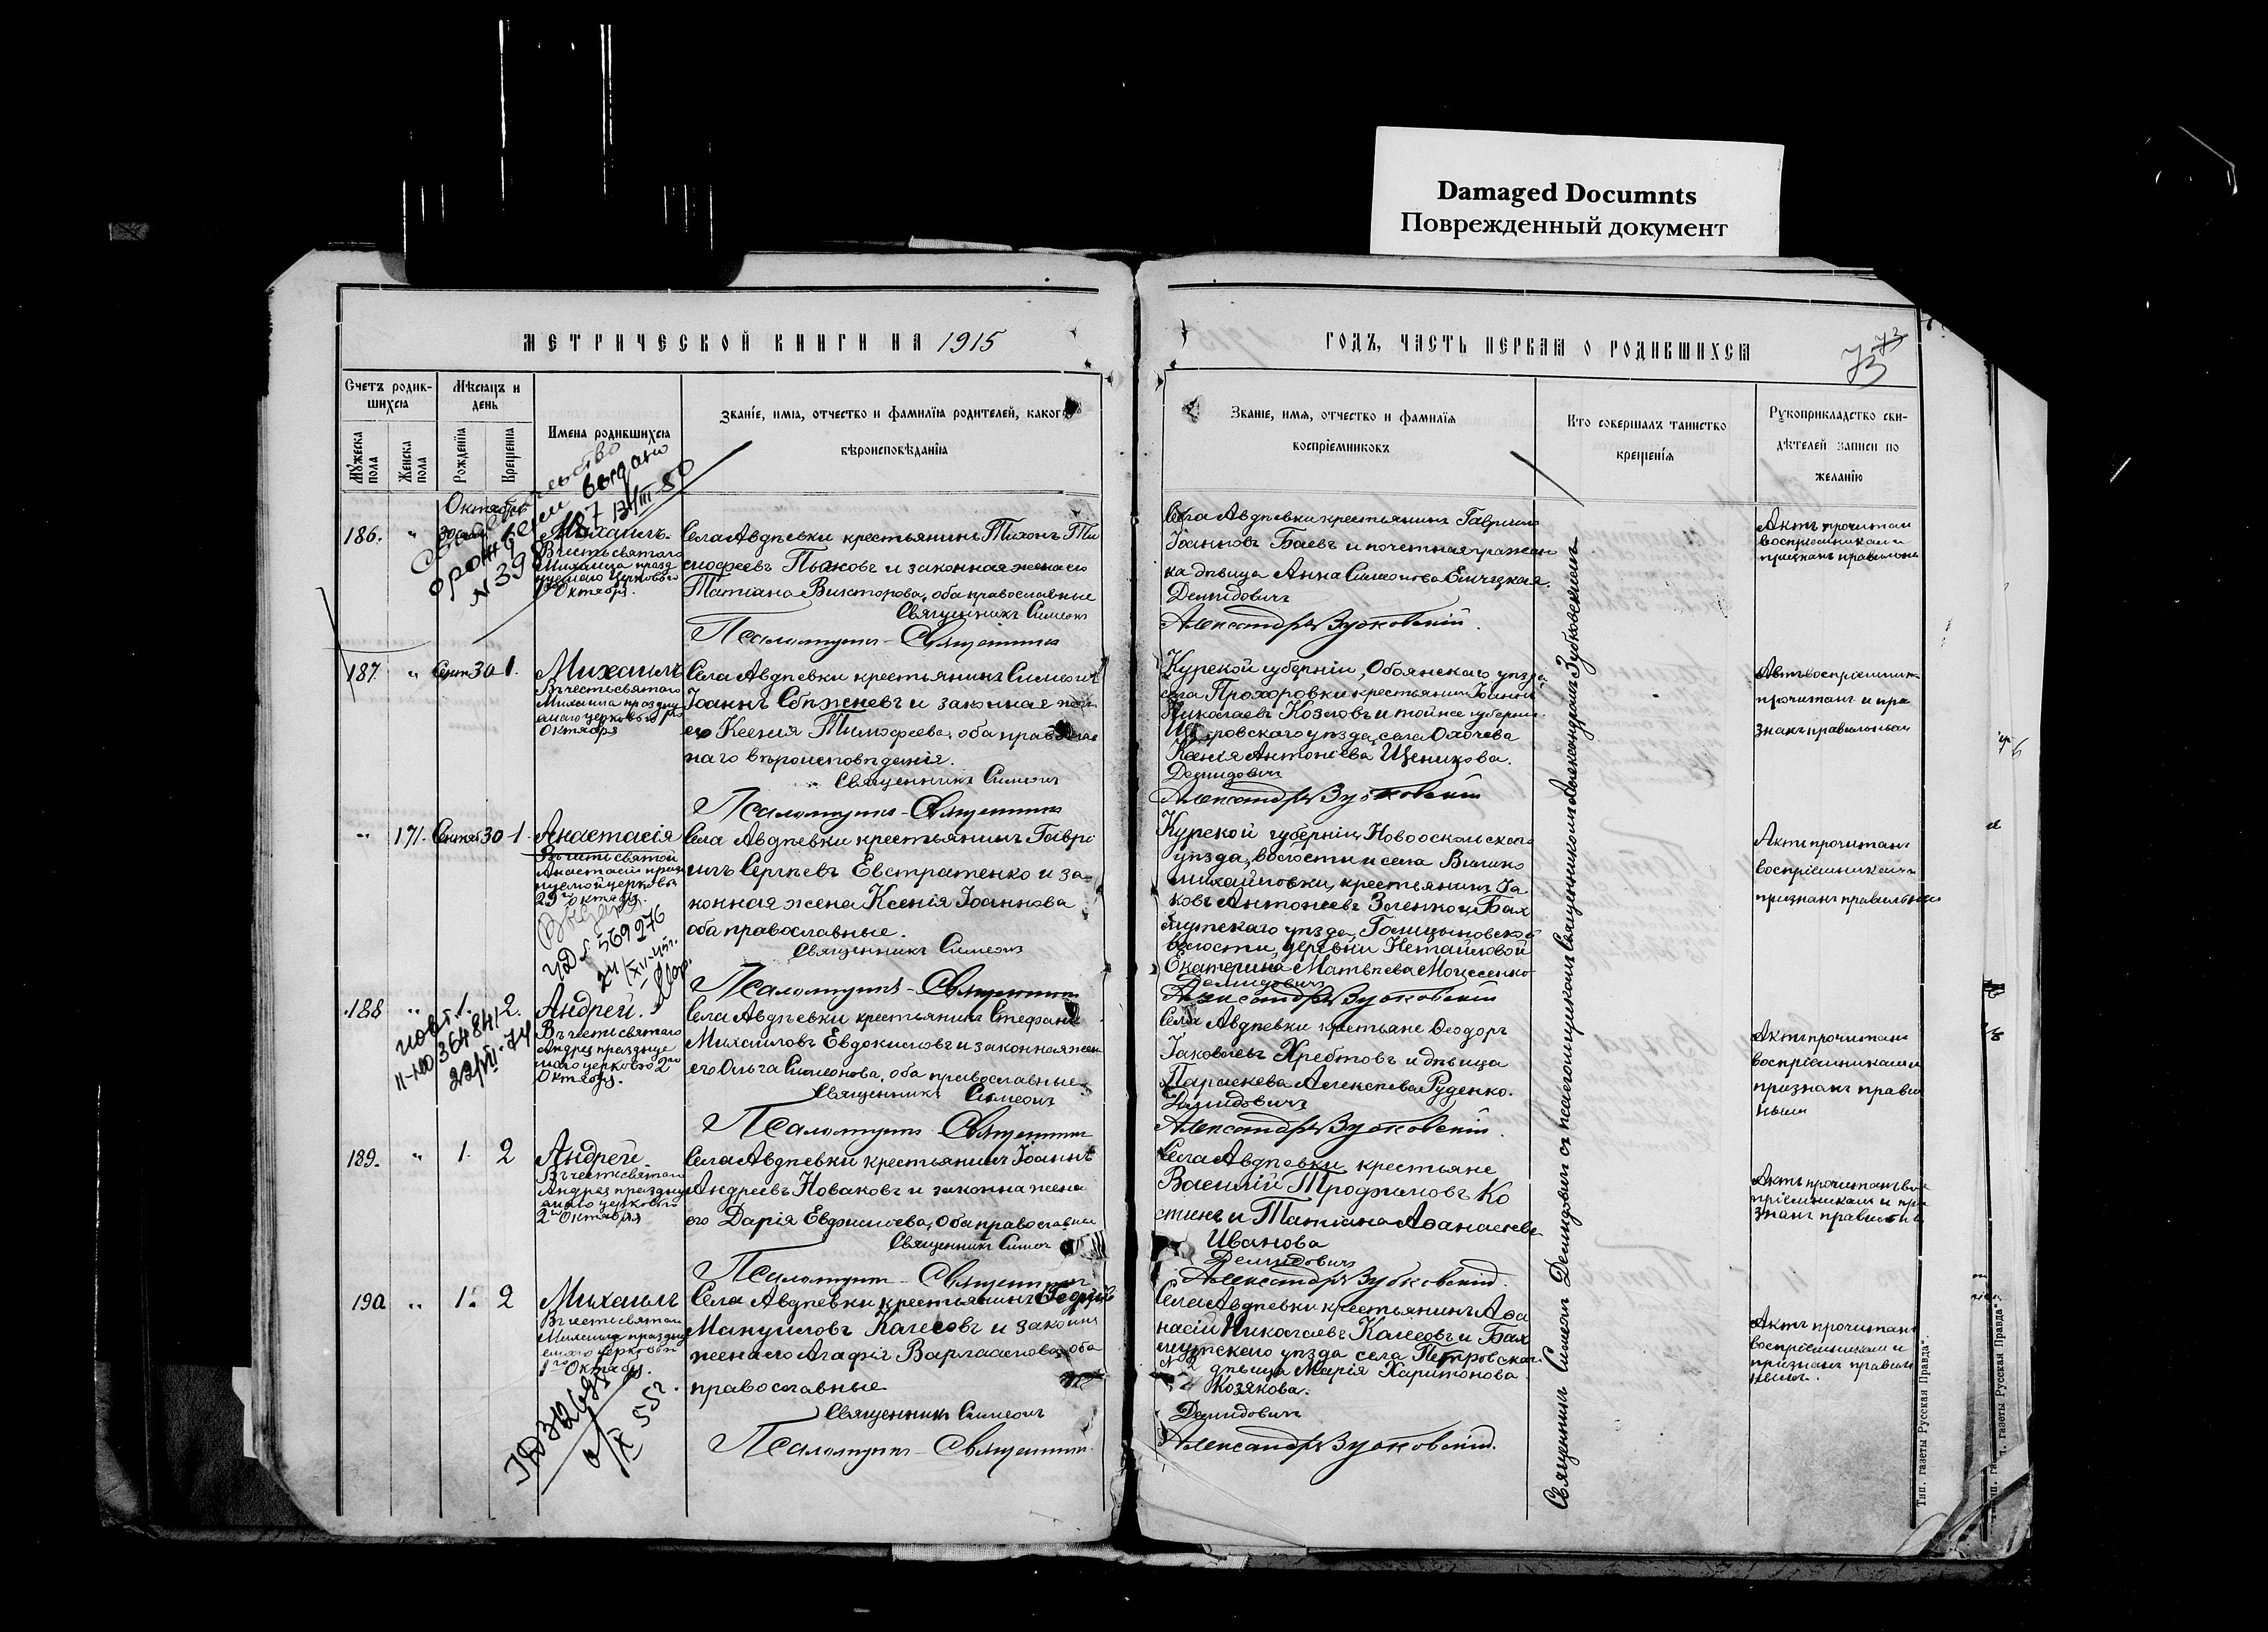 Damaged Documnts
Поврежденный документ
МЕТРИЧЕСКОЙ КНИГИ НА 1915
ГОДЪ, ЧАСТЬ ПЕРВАЯ О РОДИВШИХСЯ
73
Счетъ родив-
шихся
Мужеска пола
Женска пола
Мѣсяцъ и
день
Рожденія
Крещенія
Имена родившихся
Званіе, имя, отчество и фамилія родителей, какого
вѣроисповѣданія
Званіе, имя, отчество и фамилія
воспріемниковъ
Кто совершалъ таинство
крещенія
Рукоприкладство сви-
дѣтелей записи по
желанію
Октябрь
186. "
Михаилъ.
Въ честь святого
Михаила празд
нуемаго церковью
1го Октября.
Села Авдѣевки крестьянинъ Тихонъ Ти
мофеевъ Пьяновъ и законная жена его
Татіана Викторова, оба православные
Священникъ Симеонъ
Псаломщикъ - Священникъ
Села Авдѣевки крестьянинъ Гавріилъ
Іоанновъ Баевъ и почетная граждан
ка дѣвица Анна Симеонова
Демидовичъ
Александръ Зубковскій.
Актъ прочитан
воспріемниками и
признанъ правильны
187. " Сент 30 1.
Михаилъ
Въ честь святого
Михаила праздну
емаго церковью 1го
Октября
Села Авдѣевки крестьянинъ Симеонъ
Іоаннъ и законная жен
его Ксенія Тимофеева, оба православ
наго вѣроисповѣданія.
Священникъ Симеонъ
Псаломщикъ - Священникъ
Курской губерніи, Обоянскаго уѣзда
села Прохоровки крестьянин Іоаннъ
Николаевъ Козловъ и той же губерніи
Щигровскаго уѣзда, села Охочева
Ксенія Антонієва Щеникова.
Демидовичъ
Александръ Зубковскій
Актъ воспріемник
прочитанъ и при
знанъ правильным
" 171. Сентяб 30 1.
Анастасія
Въ честь святой
Анастасіи празд
нуемой церковью
29го Октября.
569276
Села Авдѣевки крестьянинъ Гаврі
илъ Сергѣевъ Евстратенко и за-
конная жена Ксенія Іоаннова
оба православные.
Священникъ Симеонъ
Псаломщикъ - Священникъ
Курской губерніи, Новооскольскаго
уѣзда, волости и села Велико
михайловки, крестьянинъ Іа
ковъ Антоніевъ Зленко и Бах
мутскаго уѣзда, Голицыновской
волости, деревни Нетайловой
Екатерина Матвѣева Моисеенко
Демидовичъ
Александръ Зубковскій
Актъ прочитанъ
воспріемниками
признанъ правильным
188 " 1. 2.
Андрей.
Въ честь святаго
Андрея праздну
емаго церковью 2го
Октября.
Села Авдѣевки крестьянинъ Стефанъ
Михаиловъ Евдокимовъ и законная жен
его Ольга Симеонова, оба православные
Священникъ Симеонъ
Псаломщикъ Священникъ
Села Авдѣевки крестьяне Ѳеодоръ
Іаковлевъ Хребтовъ и дѣвица
Параскева Алексѣева Руденко.
Демидовичъ
Александръ Зубковскій.
Актъ прочитанъ
воспріемниками
признанъ правил
ным
189. " 1. 2
Андрей
Въ честь святаго
Андрея праздну
емаго церковью
2го Октября
Села Авдѣевки крестьянинъ Іоаннъ
Андреевъ Новаковъ и законна жена
его Дарія Евфиміева, оба православные
Священникъ Симеон
Псаломщикъ - Священникъ
Села Авдѣевки крестьяне
Василій Трофимовъ Ко
стинъ и Татіана Аѳанасіева
Иванова
Демидовичъ
Александръ Зубковскій.
Актъ прочитанъ вос
пріемниками и при
знанъ правильны
190 " 1. 2
Михаилъ
Въ честь святаго
Михаила праздну
емаго церковью
1го Октября.
Села Авдѣевки крестьянинъ Георгій
Мануиловъ Калесовъ и законн
жена его Агафія Варлаамова, оба
православные
Священникъ Симеонъ
Псаломщикъ - Священникъ.
Села Авдѣевки крестьянинъ Аѳа
насій Николаевъ Калесовъ и Бах
мутскаго уѣзда села Петровскаго
№2 дѣвица Марія Харитонова
Козякова.
Демидовичъ
Александръ Зубковскій.
Актъ прочитанъ
воспріемниками и
признанъ правил
нымъ.
Священникъ Симеонъ Демидовичъ съ псаломщикомъ Священникомъ Александромъ Зубковскимъ
Тип. газеты Русская Правда".
т. газеты Русская Правда".